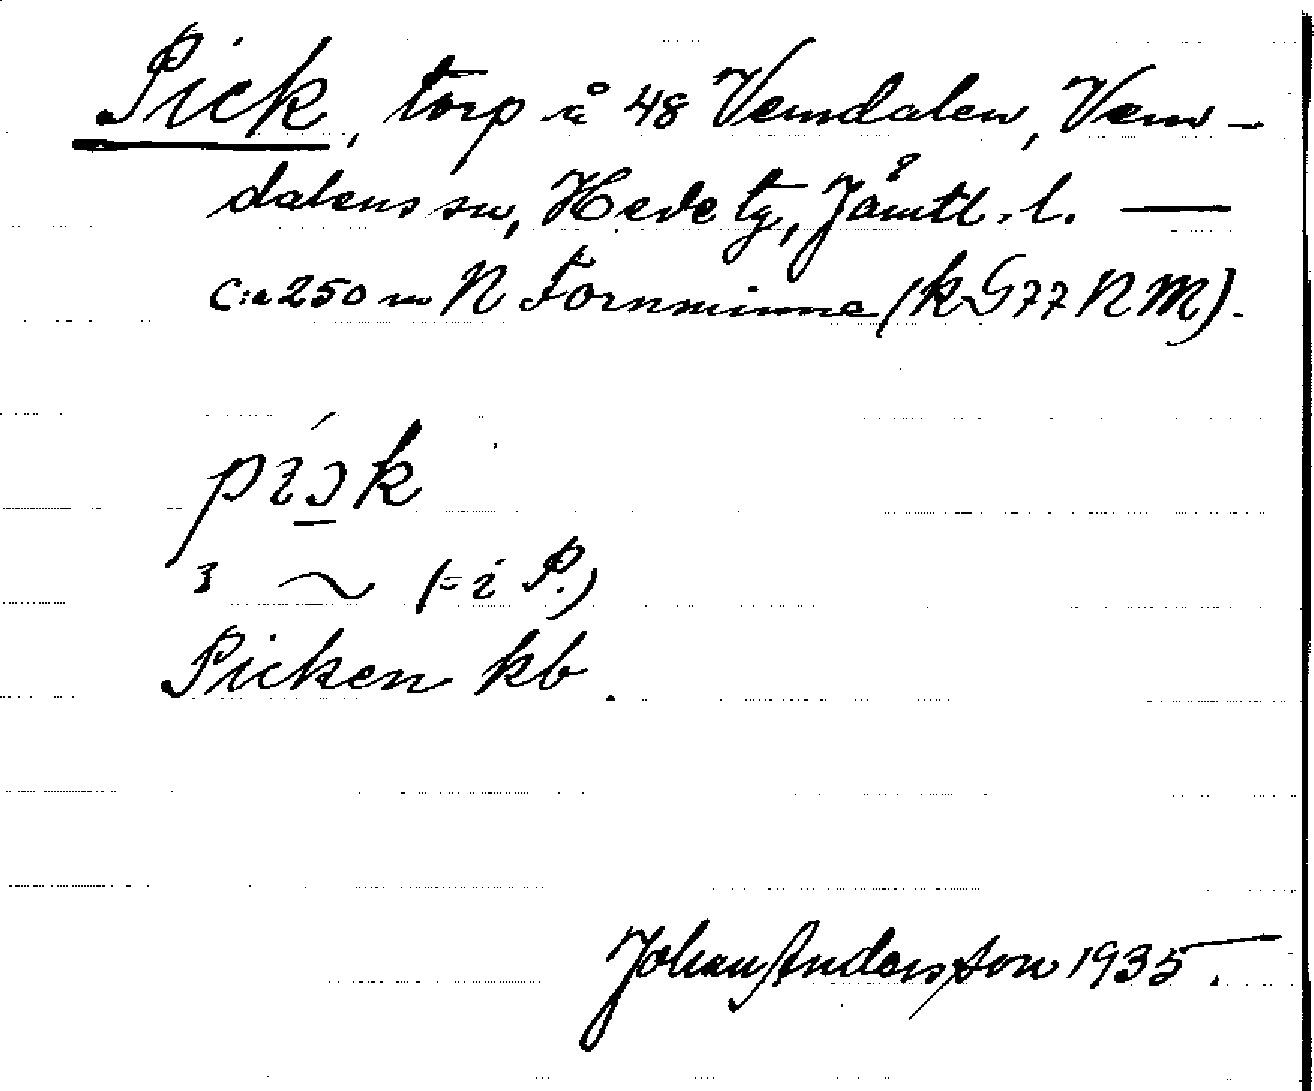 Pick, torp å 48 Vemdalen, Vem-
dalens sn, Hede tg, Jämtl. l. —
c:a 250 m N Fornminne (kG77NM).
píɔk
~ (= i P.)
Picken kb.
Johan Andersson 1935.